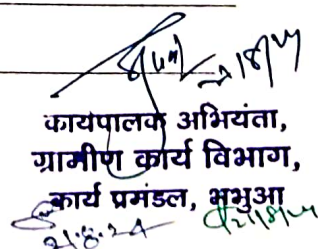 कार्यपालक अभियंता,
ग्रामीण कार्य विभाग,
कार्य प्रमंडल, भभुआ
21.8.24